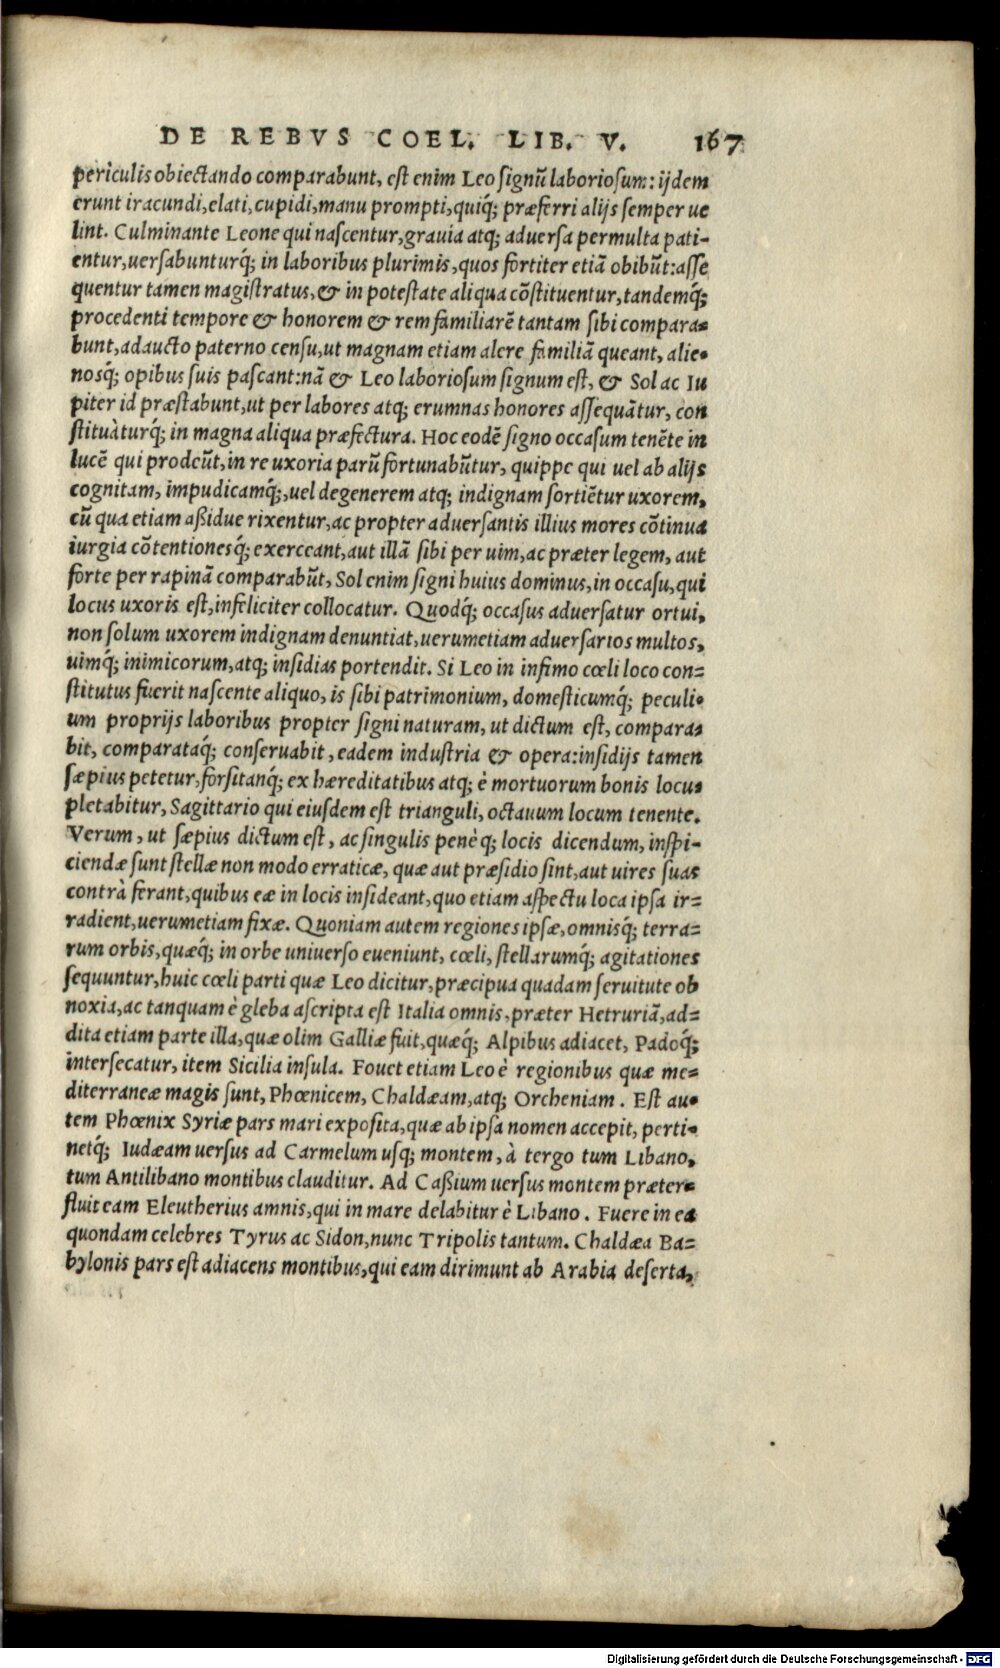 DE REBVS COEL. LIB. V. 167
periculis obiectando comparabunt, est enim Leo signũ laboriosum: ijdem
erunt iracundi, elati, cupidi, manu prompti, quiq́; præferri alijs semper ue
lint. Culminante Leone qui nascentur, grauia atq; aduersa permulta pati-
entur, uersabunturq́; in laboribus plurimis, quos fortiter etiã obibũt: asse
quentur tamen magistratus, & in potestate aliqua cõstituentur, tandemq́;
procedenti tempore & honorem & rem familiarẽ tantam sibi compara-
bunt, adaucto paterno censu, ut magnam etiam alere familiã queant, alie-
nosq́; opibus suis pascant: nã & Leo laboriosum signum est, & Sol ac Iu
piter id præstabunt, ut per labores atq; erumnas honores assequãtur, con
stituàturq́; in magna aliqua præfectura. Hoc eodẽ signo occasum tenẽte in
lucẽ qui prodeũt, in re uxoria parũ fortunabũtur, quippe qui uel ab alijs
cognitam, impudicamq́;, uel degenerem atq; indignam sortiẽtur uxorem,
cũ qua etiam aßidue rixentur, ac propter aduersantis illius mores cõtinua
iurgia cõtentionesq́; exerceant, aut illã sibi per uim, ac præter legem, aut
forte per rapinã comparabũt, Sol enim signi huius dominus, in occasu, qui
locus uxoris est, infeliciter collocatur. Quodq́; occasus aduersatur ortui,
non solum uxorem indignam denuntiat, uerumetiam aduersarios multos,
uimq́; inimicorum, atq; insidias portendit. Si Leo in infimo cœli loco con-
stitutus fuerit nascente aliquo, is sibi patrimonium, domesticumq́; peculi-
um proprijs laboribus propter signi naturam, ut dictum est, compara-
bit, comparataq́; conseruabit, eadem industria & opera: insidijs tamen
sæpius petetur, forsitanq́; ex hæreditatibus atq; è mortuorum bonis locu-
pletabitur, Sagittario qui eiusdem est trianguli, octauum locum tenente.
Verum, ut sæpius dictum est, ac singulis penèq; locis dicendum, inspi-
ciendæ sunt stellæ non modo erraticæ, quæ aut præsidio sint, aut uires suas
contrà ferant, quibus eæ in locis insideant, quo etiam aspectu loca ipsa ir-
radient, uerumetiam fixæ. Quoniam autem regiones ipsæ, omnisq́; terra-
rum orbis, quæq́; in orbe uniuerso eueniunt, cœli, stellarumq́; agitationes
sequuntur, huic cœli parti quæ Leo dicitur, præcipua quadam seruitute ob
noxia, ac tanquam è gleba ascripta est Italia omnis, præter Hetruriã, ad-
dita etiam parte illa, quæ olim Galliæ fuit, quæq́; Alpibus adiacet, Padoq́;
intersecatur, item Sicilia insula. Fouet etiam Leo è regionibus quæ me-
diterraneæ magis sunt, Phœnicem, Chaldæam, atq; Orcheniam. Est au-
tem Phœnix Syriæ pars mari exposita, quæ ab ipsa nomen accepit, perti-
netq́; Iudæam uersus ad Carmelum usq; montem, à tergo tum Libano,
tum Antilibano montibus clauditur. Ad Caßium uersus montem præter-
fluit eam Eleutherius amnis, qui in mare delabitur è Libano. Fuere in ea
quondam celebres Tyrus ac Sidon, nunc Tripolis tantum. Chaldæa Ba-
bylonis pars est adiacens montibus, qui eam dirimunt ab Arabia deserta,
Digitalisierung gefördert durch die Deutsche Forschungsgemeinschaft - DFG